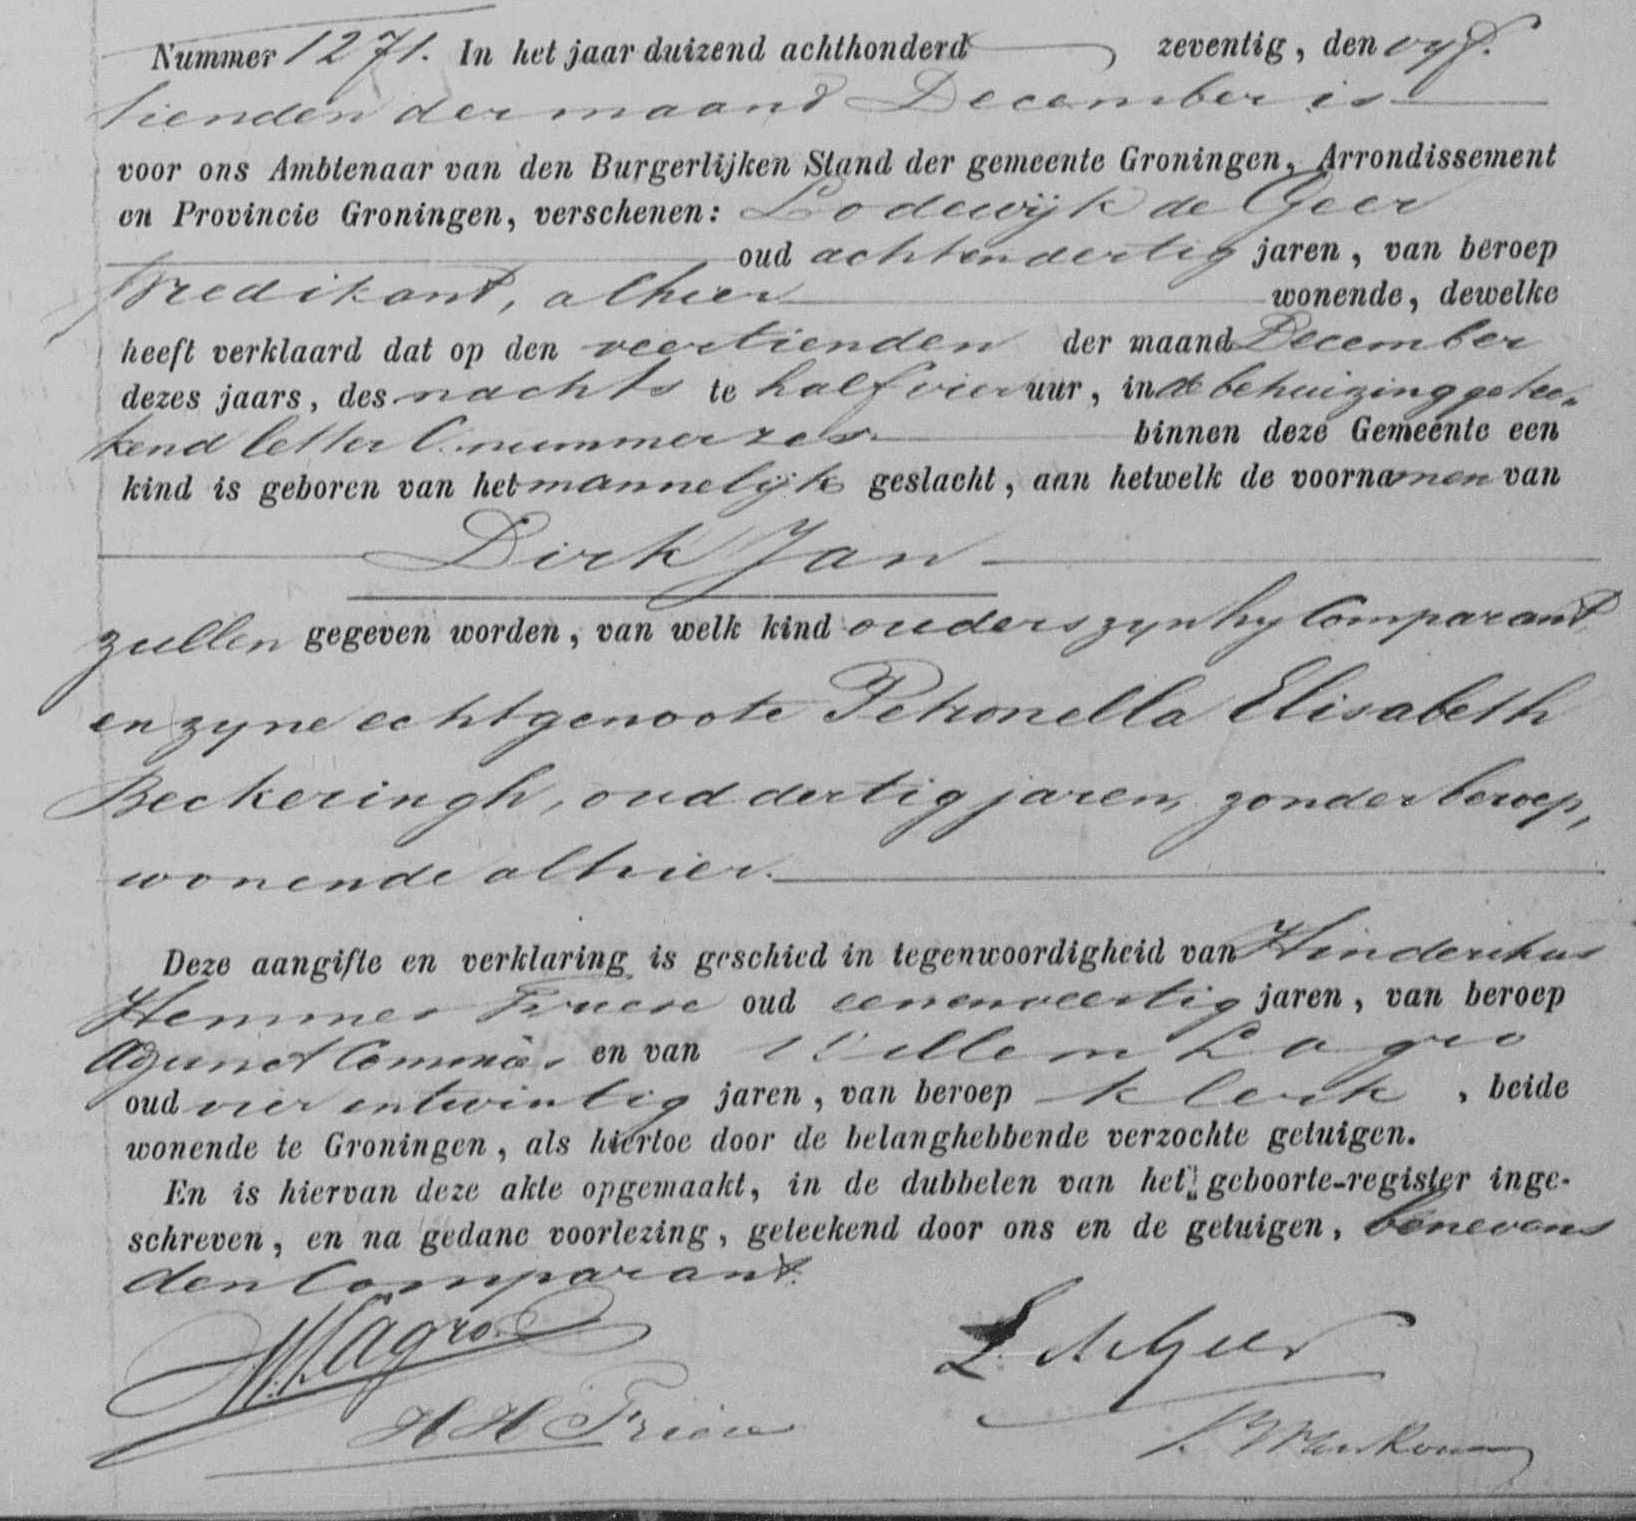 Nummer 1271. In het jaar duizend achthonderd zeventig, den vyf-
tienden der maand December is
voor ons Ambtenaar van den Burgerlijken Stand der gemeente Groningen, Arrondissement
en Provincie Groningen, verschenen: Lodewijk de Geer
oud achtendertig jaren, van beroep
Predikant, alhier wonende, dewelke
heeft verklaard dat op den veertienden der maand December
dezes jaars, des nachts te half vier uur, in de behuizing getee-
kend letter C. nummer zes binnen deze Gemeente een
kind is geboren van het mannelijk geslacht, aan hetwelk de voornamen van
Dirk Jan
zullen gegeven worden, van welk kind ouders zyn hy Comparant
en zyne echtgenoote Petronella Elisabeth
Beckeringh, oud dertig jaren, zonder beroep,
wonende alhier.
Deze aangifte en verklaring is geschied in tegenwoordigheid van Hinderikus
Hemmes oud eenenveertig jaren, van beroep
Adjunct Commies en van Willem Lagro
oud vier entwintig jaren, van beroep klerk, beide
wonende te Groningen, als hiertoe door de belanghebbende verzochte getuigen.
En is hiervan deze akte opgemaakt, in de dubbelen van het geboorte-register inge-
schreven, en na gedane voorlezing, geteekend door ons en de getuigen, benevens
den Comparant.
W. Lagro.
L. de Geer
H H